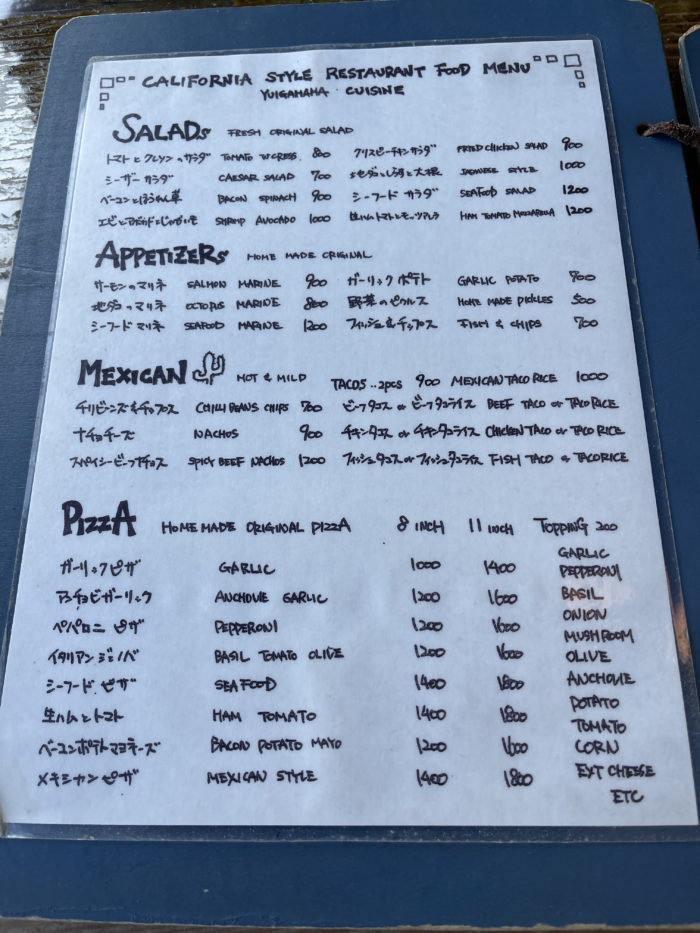 CALIFORNIA STYLE RESTAURANT FOOD MENU
YUIGAHAMA CUISINE
SALADS FRESH ORIGINAL SALAD
トマトとクレソンのサラダ TOMATO W CRESS 800 クリスピーチキンサラダ FRIED CHICKEN SALAD 900
シーザーサラダ CAESAR SALAD 700 大根 JAPANESE STYLE 1000
ベーコンとほうれん草 BACON SPINACH 900 シーフードサラダ SEAFOOD SALAD 1200
エビとアボガドとじゃがいも SHRIMP AVOCADO 1000 生ハムトマトとモッツアレラ HAM TOMATO MOZZARELLA 1200
APPETIZERS HOME MADE ORIGINAL
サーモンのマリネ SALMON MARINE 900 ガーリックポテト GARLIC POTATO 700
地ダコのマリネ OCTOPUS MARINE 800 野菜のピクルス HOME MADE PICKLES 500
シーフードマリネ SEAFOOD MARINE 1200 フィッシュ&チップス FISH & CHIPS 700
MEXICAN HOT & MILD TACOS..2pcs 900 MEXICAN TACO RICE 1000
チリビーンズ&チップス CHILLI BEANS CHIPS 700 ビーフタコス or ビーフタコライス BEEF TACO or TACO RICE
ナチョチーズ NACHOS 900 チキンタコス or チキンタコライス CHICKEN TACO or TACO RICE
スパイシービーフナチョス SPICY BEEF NACHOS 1200 フィッシュタコス or フィッシュタコライス FISH TACO or TACO RICE
PIZZA HOME MADE ORIGINAL PIZZA 8 INCH 11 INCH TOPPING 200
ガーリックピザ GARLIC 1000 1400 GARLIC
PEPPERONI
アンチョビガーリック ANCHOVIE GARLIC 1200 1600 BASIL
ONION
ペパロニピザ PEPPERONI 1200 1600 MUSHROOM
イタリアンジェノベ BASIL TOMATO OLIVE 1200 1600 OLIVE
シーフードピザ SEAFOOD 1400 1800 ANCHOVIE
POTATO
生ハムとトマト HAM TOMATO 1400 1800 TOMATO
ベーコンポテトマヨネーズ BACON POTATO MAYO 1200 1600 CORN
メキシカンピザ MEXICAN STYLE 1400 1800 EXT CHEESE
ETC